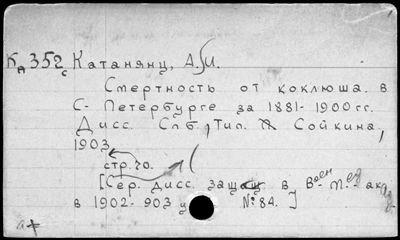 Кд 352с Катанянц, А. И.
Смертность от коклюша в
С-Петербурге за 1881-1900 гг.
Дисс. Спб, Тип. Сойкина,
1903
стр. 70.
[Сер. дисс. защ. в Воен-Мед-акад.
в 1902-903 у № 84. ]